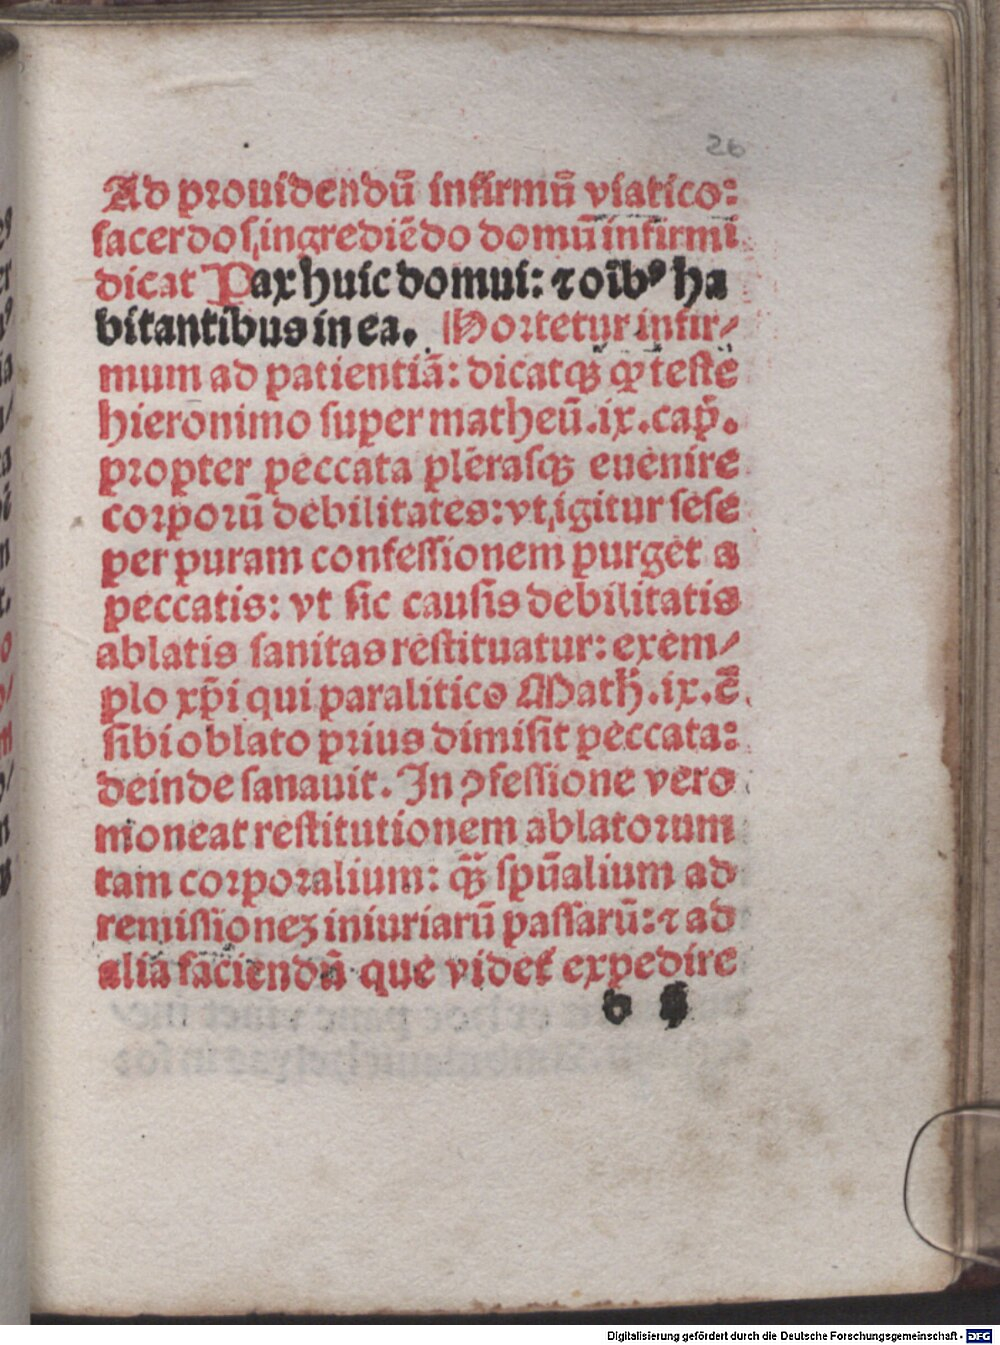 26
Ad prouidendū infirmū viatico:
sacerdos, ingrediēdo domū infirmi
dicat Pax huic domui: ⁊ oībꝰ ha
bitantibus in ea. Hortetur infir⸗
mum ad patientiā: dicatqꝫ ꝙ teste
hieronimo super matheū .ix. cap̄.
propter peccata plērasqꝫ euenire
corporū debilitates: vt, igitur sese
per puram confessionem purget a
peccatis: vt sic causis debilitatis
ablatis sanitas restituatur: exem⸗
plo xp̄i qui paralitico Math̄. ix. c̄
sibi oblato prius dimisit peccata:
deinde sanauit. In ꝯfessione vero
moneat restitutionem ablatorum
tam corporalium: qꝫ̄ spūalium ad
remissioneꝫ iniuriarū passarū: ⁊ ad
alia faciendū que videt᷑ expedire
Digitalisierung gefördert durch die Deutsche Forschungsgemeinschaft - DFG